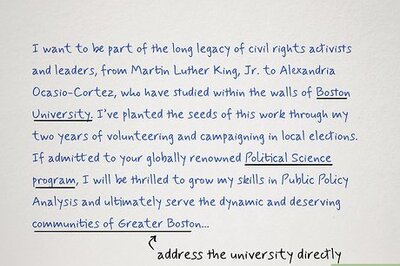 I want to be part of the long legacy of civil rights activists
and leaders, from Martin Luther King, Jr. to Alexandria
Ocasio-Cortez, who have studied within the walls of Boston
University. I've planted the seeds of this work through my
two years of volunteering and campaigning in local elections.
If admitted to your globally renowned Political Science
program, I will be thrilled to grow my skills in Public Policy
Analysis and ultimately serve the dynamic and deserving
communities of Greater Boston...
address the university directly